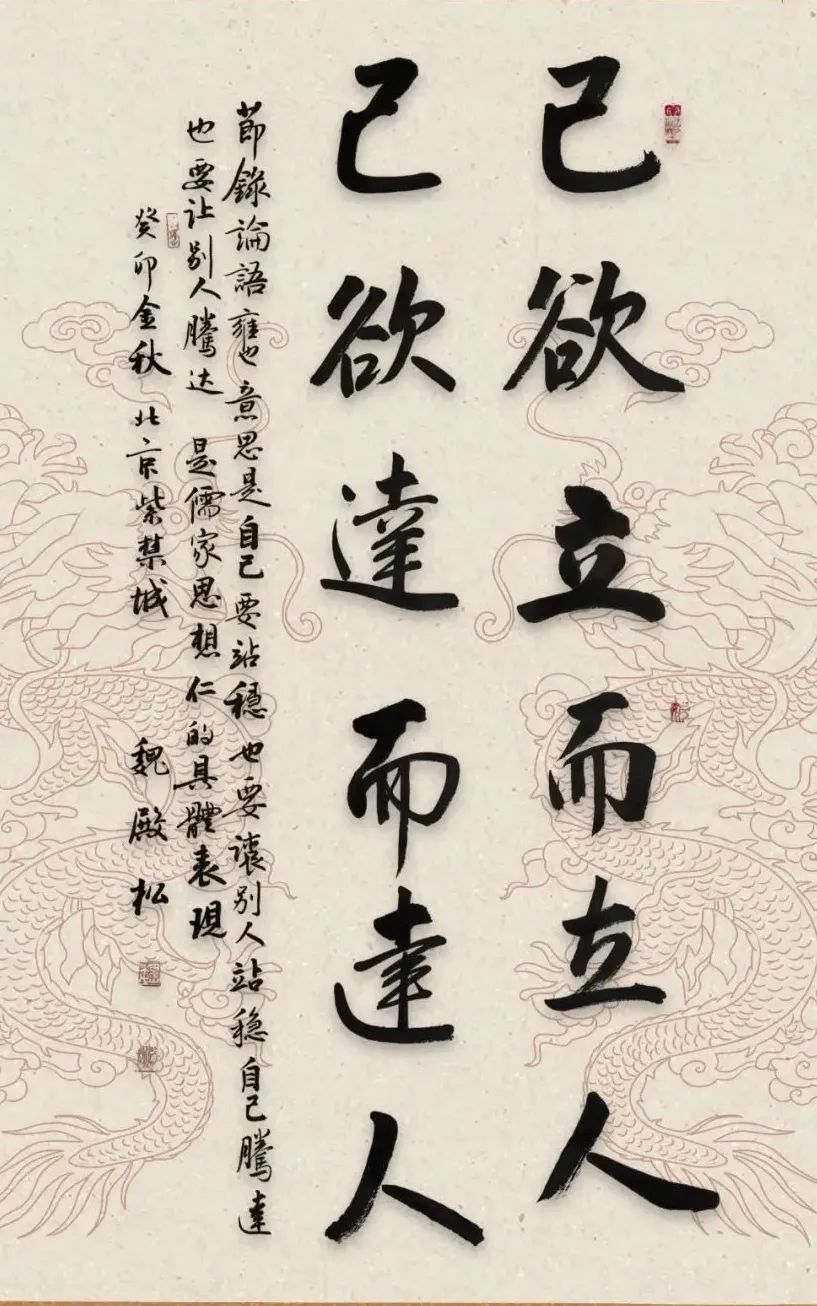 己欲立而立人
己欲達而達人
節錄論語雍也意思是自己要站穩也要讓别人站稳自己騰達
也要让别人騰达是儒家思想仁的具體表現
癸卯金秋北京紫禁城魏殿松